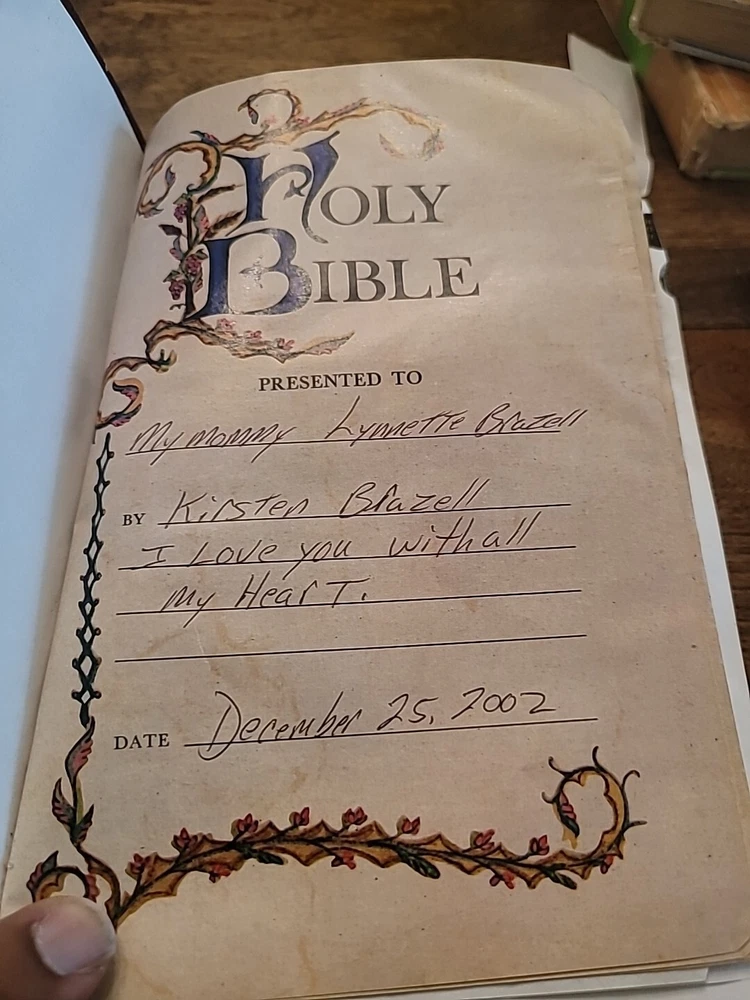 HOLY
BIBLE
PRESENTED TO
My mommy Lynnette Brazell
BY Kirsten Brazell
I Love you with all
my Heart.
DATE December 25, 2002